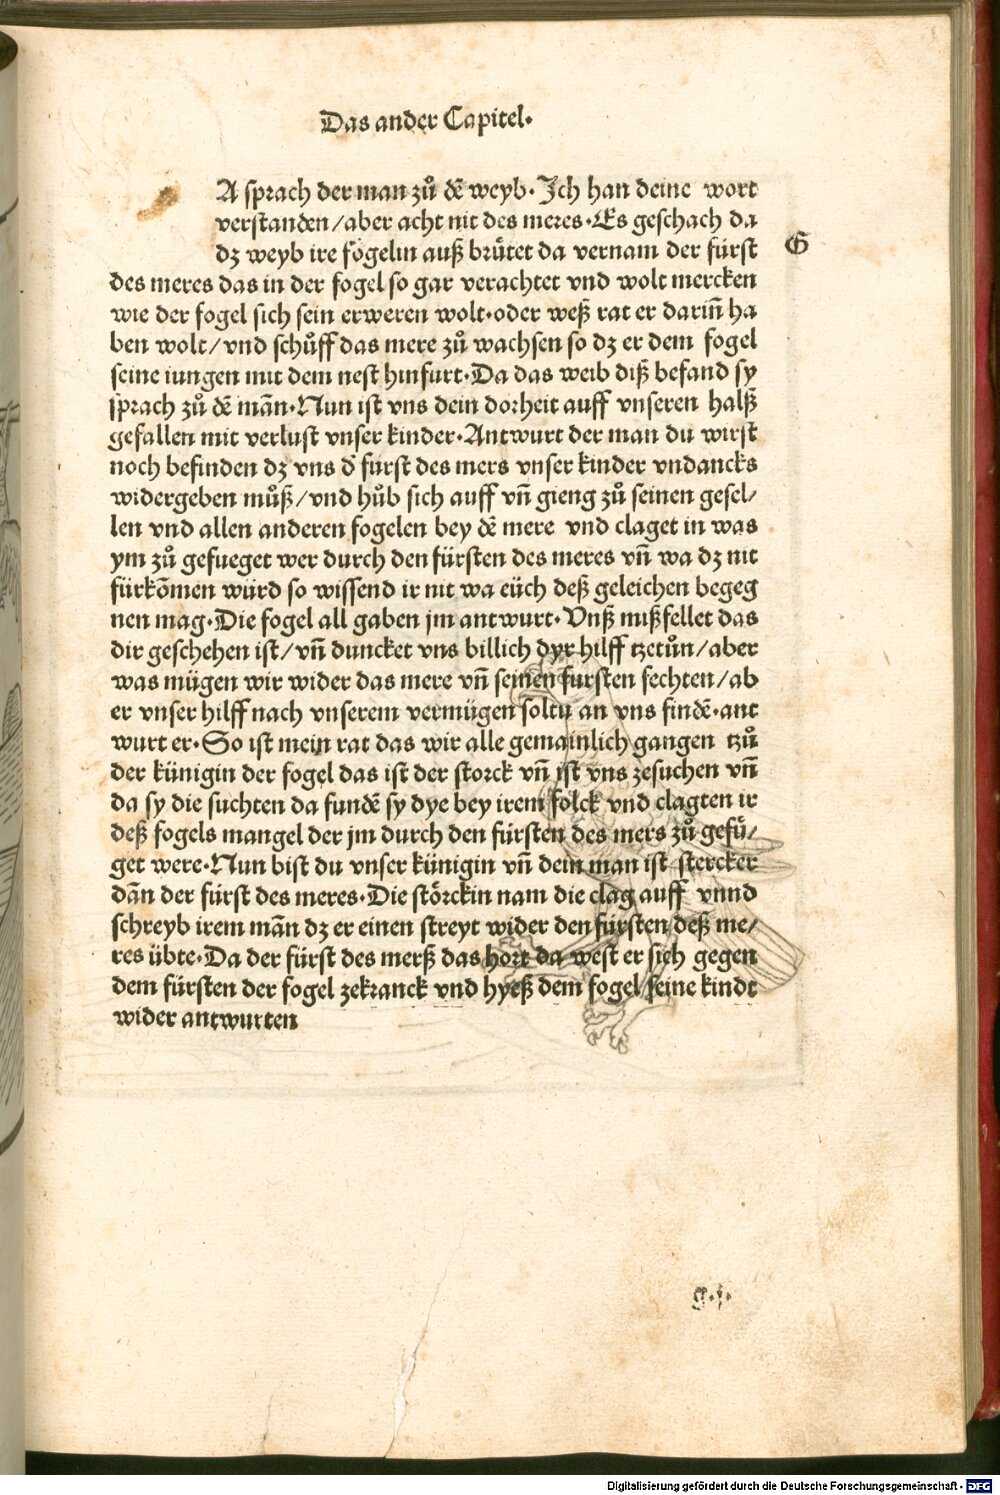 Das ander Capitel.
A sprach der man zů dē weyb. Ich han deine wort
verstanden/aber acht nit des meres. Es geschach da
dz weyb ire fogelin auß brůtet da vernam der fürst
G
des meres das in der fogel so gar verachtet vnd wolt mercken
wie der fogel sich sein erweren wolt. oder weß rat er dariñ ha
ben wolt/vnd schůff das mere zů wachsen so dz er dem fogel
seine iungen mit dem nest hinfurt. Da das weib diß befand sy
sprach zů dē mãn. Nun ist vns dein dorheit auff vnseren halß
gefallen mit verlust vnser kinder. Antwurt der man du wirst
noch befinden dz vns d' fürst des mers vnser kinder vndancks
widergeben můß/vnd hůb sich auff vñ gieng zů seinen gesel/
len vnd allen anderen fogelen bey dē mere vnd claget in was
ym zů gefueget wer durch den fürsten des meres vñ wa dz nit
fürkōmen würd so wissend ir nit wa eüch deß geleichen begeg
nen mag. Die fogel all gaben jm antwurt. Vnß mißfellet das
dir geschehen ist/vñ duncket vns billich dyr hilff tzetůn/aber
was mügen wir wider das mere vñ seinen fursten fechten/ab
er vnser hilff nach vnserem vermügen soltu an vns findē. ant
wurt er. So ist mein rat das wir alle gemainlich gangen tzů
der künigin der fogel das ist der storck vñ ist vns zesuchen vñ
da sy die suchten da fundē sy dye bey irem folck vnd clagten ir
deß fogels mangel der jm durch den fürsten des mers zů gefů/
get were. Nun bist du vnser künigin vñ dein man ist stercker
dãn der fürst des meres. Die störckin nam die clag auff vnnd
schreyb irem mãn dz er einen streyt wider den fürsten deß me/
res übte. Da der fürst des merß das hort da west er sich gegen
dem fürsten der fogel zekranck vnd hyeß dem fogel seine kindt
wider antwurten
g.j.
Digitalisierung gefördert durch die Deutsche Forschungsgemeinschaft - DFG